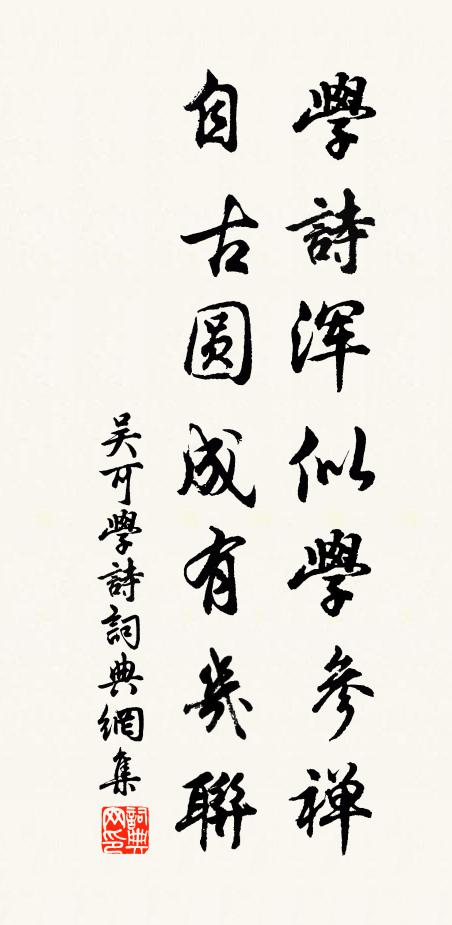 學詩渾似學參禅
自古圓成有幾聯
吴可學詩詞典網集
詞典网印